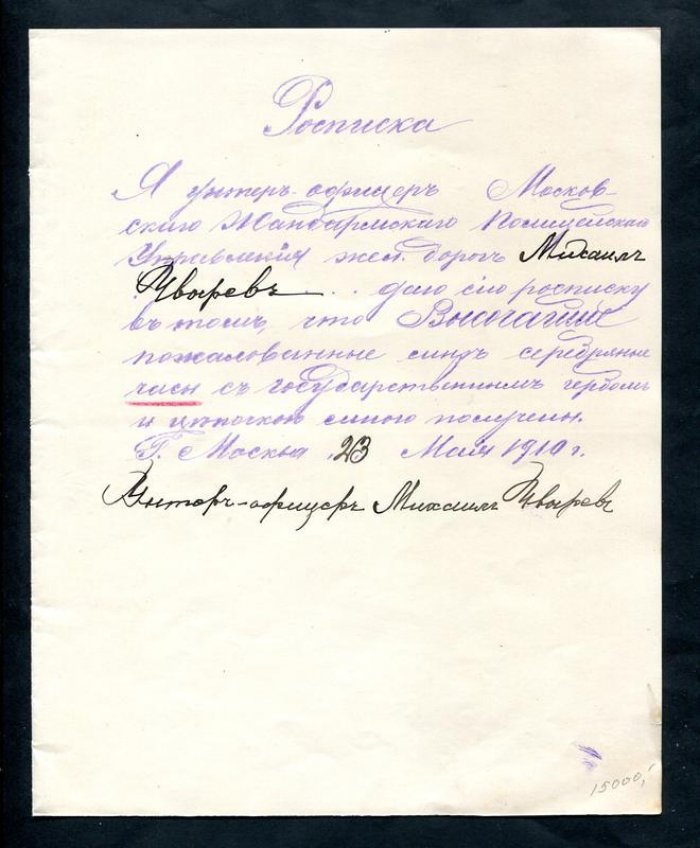 Росписка
Я унтеръ-офицеръ Москов-
скаго Жандармскаго Полицейскаго
Управленія жел. дорогъ Михаилъ
даю сію росписку
въ томъ, что Высочайше
пожалованные мнѣ серебряные
часы съ государственнымъ гербомъ
и цѣпочкою мною получены.
Г. Москва 23 Мая 1910 г.
Унтеръ-офицеръ Михаилъ
15000,